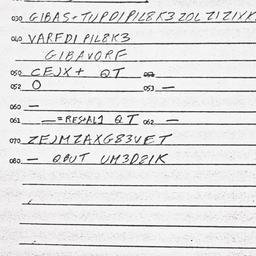 030 GIBAS+TUPDIPIL8K3ZOLZIZIXK
040 VAREDI PIL8K3
GIBAVORF
050 CEJX+ QT
052 O 053 —
060 —
061 —=RES+AL1 QT 062 —
070 ZEJMZAXG83VET
080 — OBUT UM3D2IK